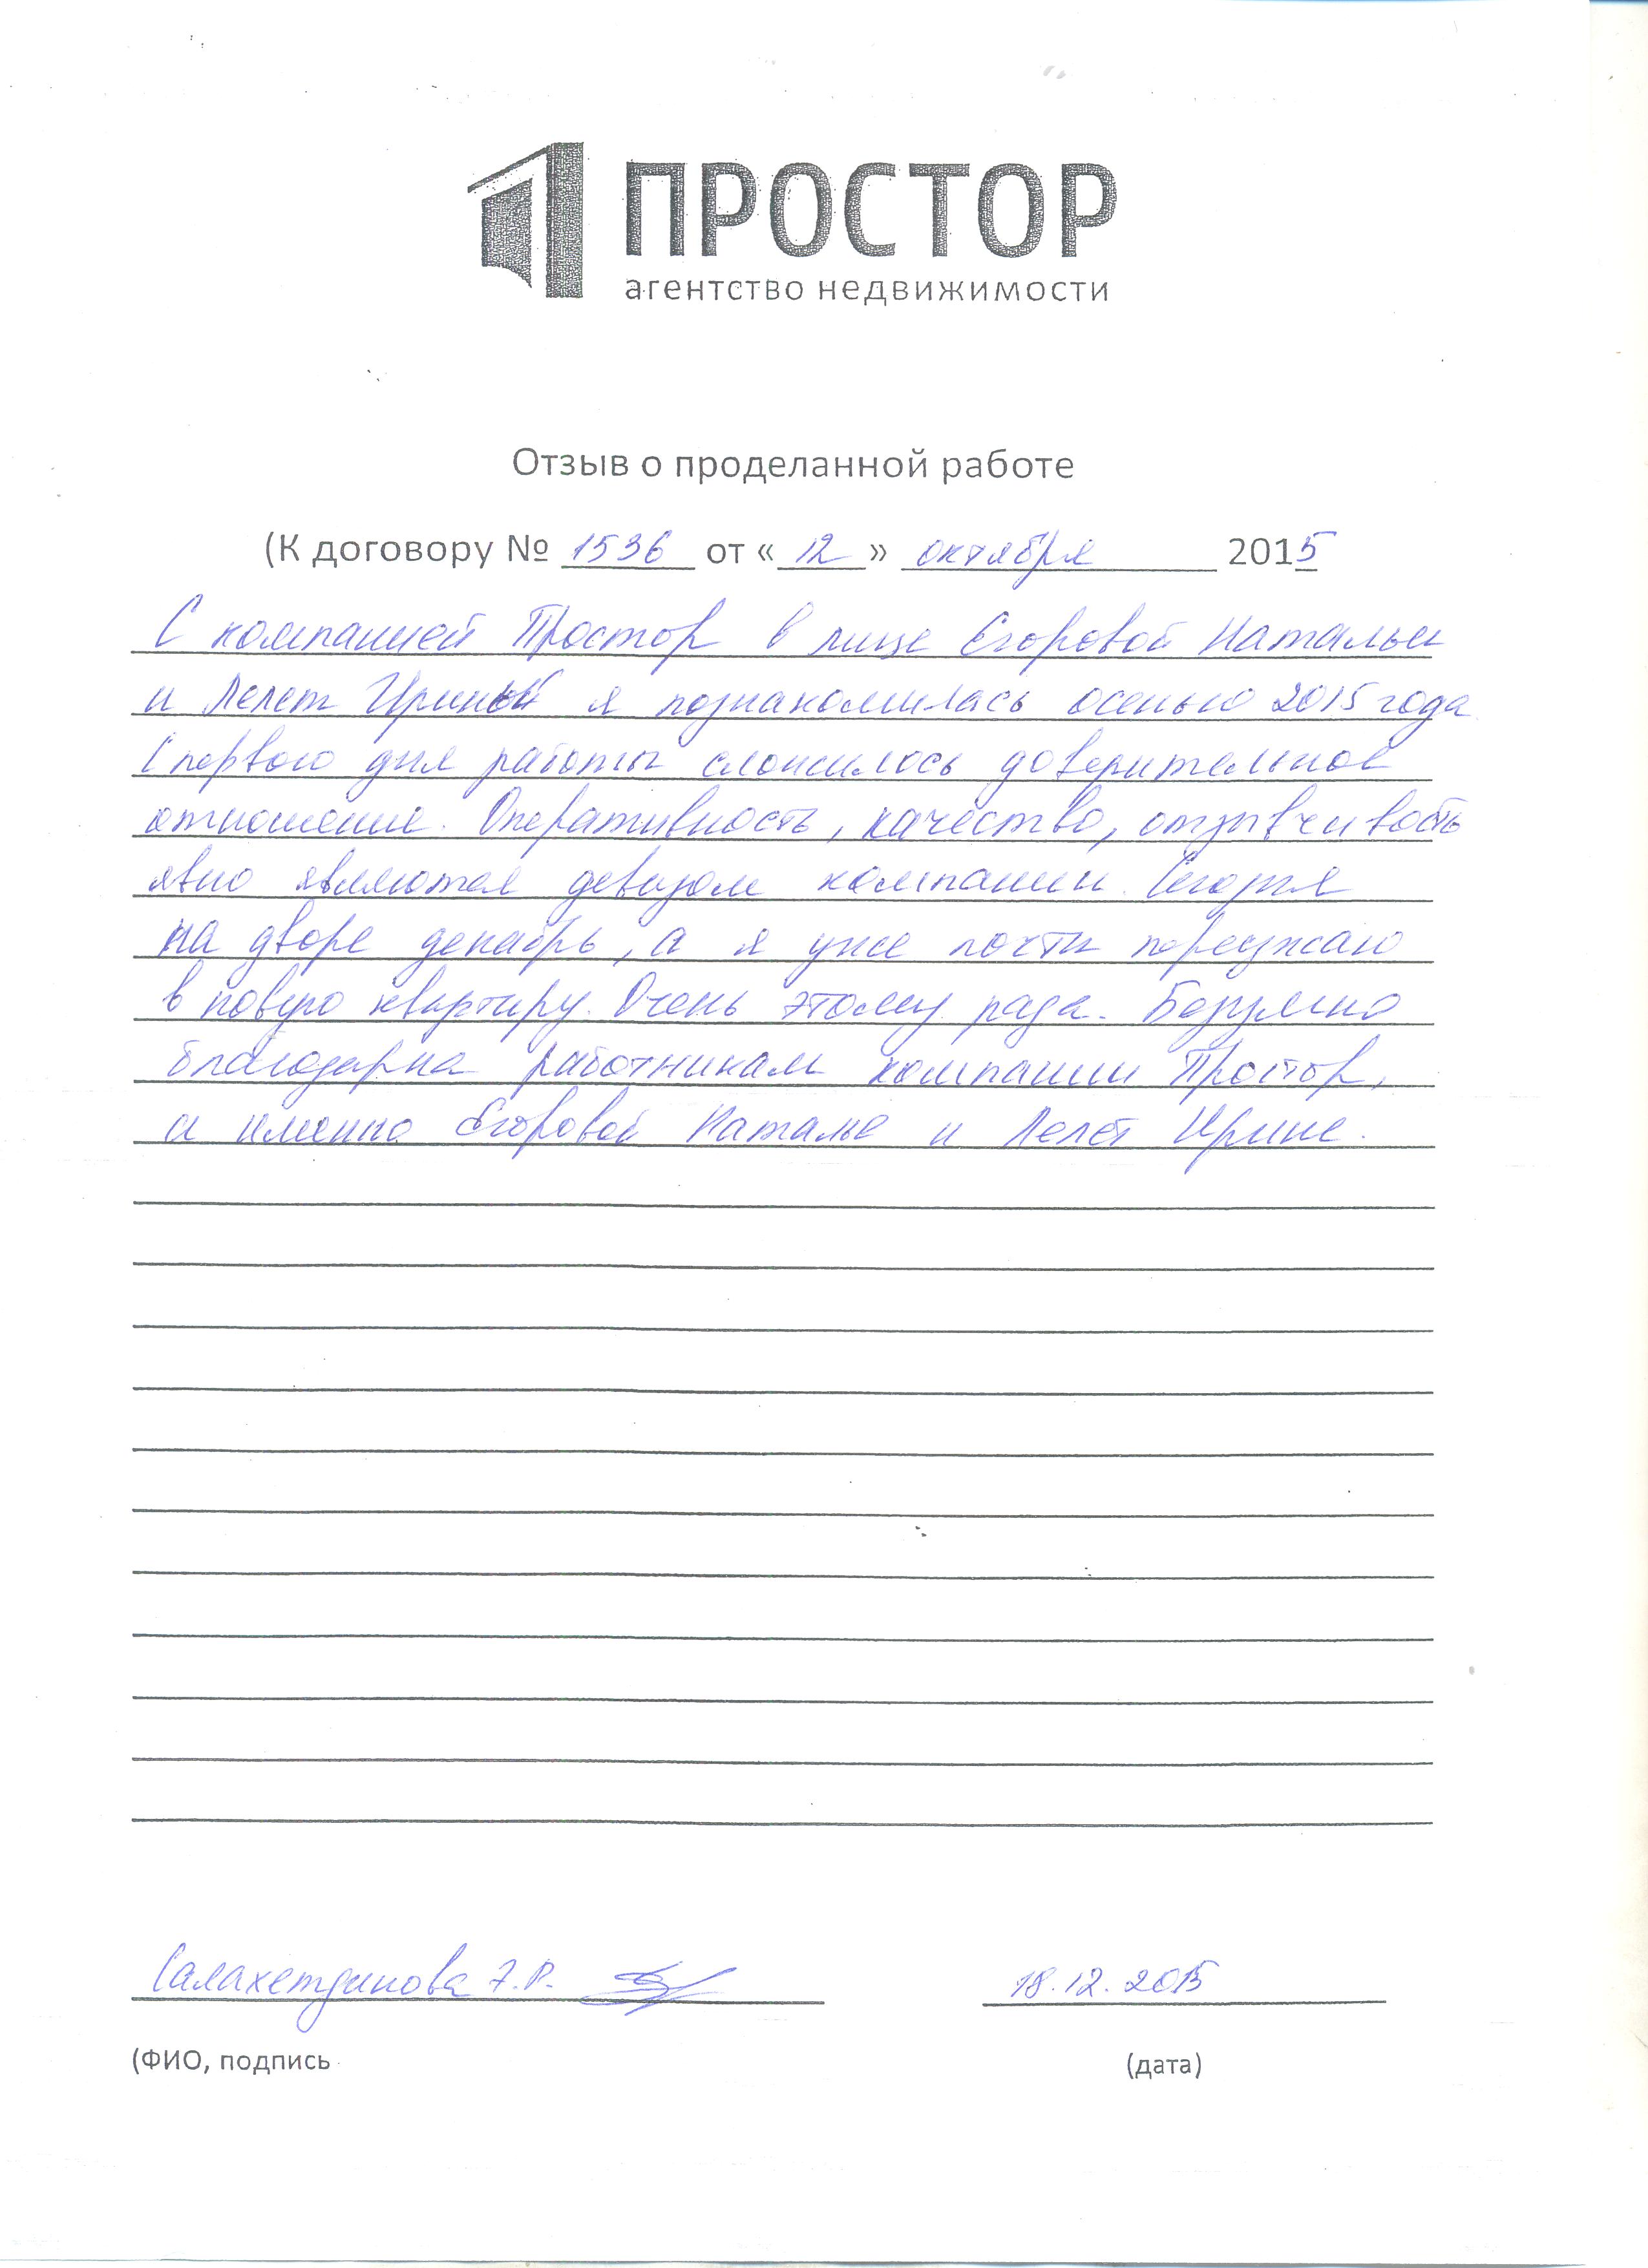 ПРОСТОР
агентство недвижимости
Отзыв о проделанной работе
(К договору № 1536 от « 12 » октября 2015
С компанией Простор в лице Егоровой Натальи
и Лелет Ириной я познакомилась осенью 2015 года
С первого дня работы сложилось доверительное
отношение. Оперативность, качество, отзывчивость
явно являются девизом компании. Сегодня
на дворе декабрь, а я уже почти переезжаю
в новую квартиру. Очень этому рада. Безумно
благодарна работникам компании Простор,
а именно Егоровой Наталье и Лелет Ирине.
Салахетдинова Э.Р. 18.12.2015
(ФИО, подпись (дата)